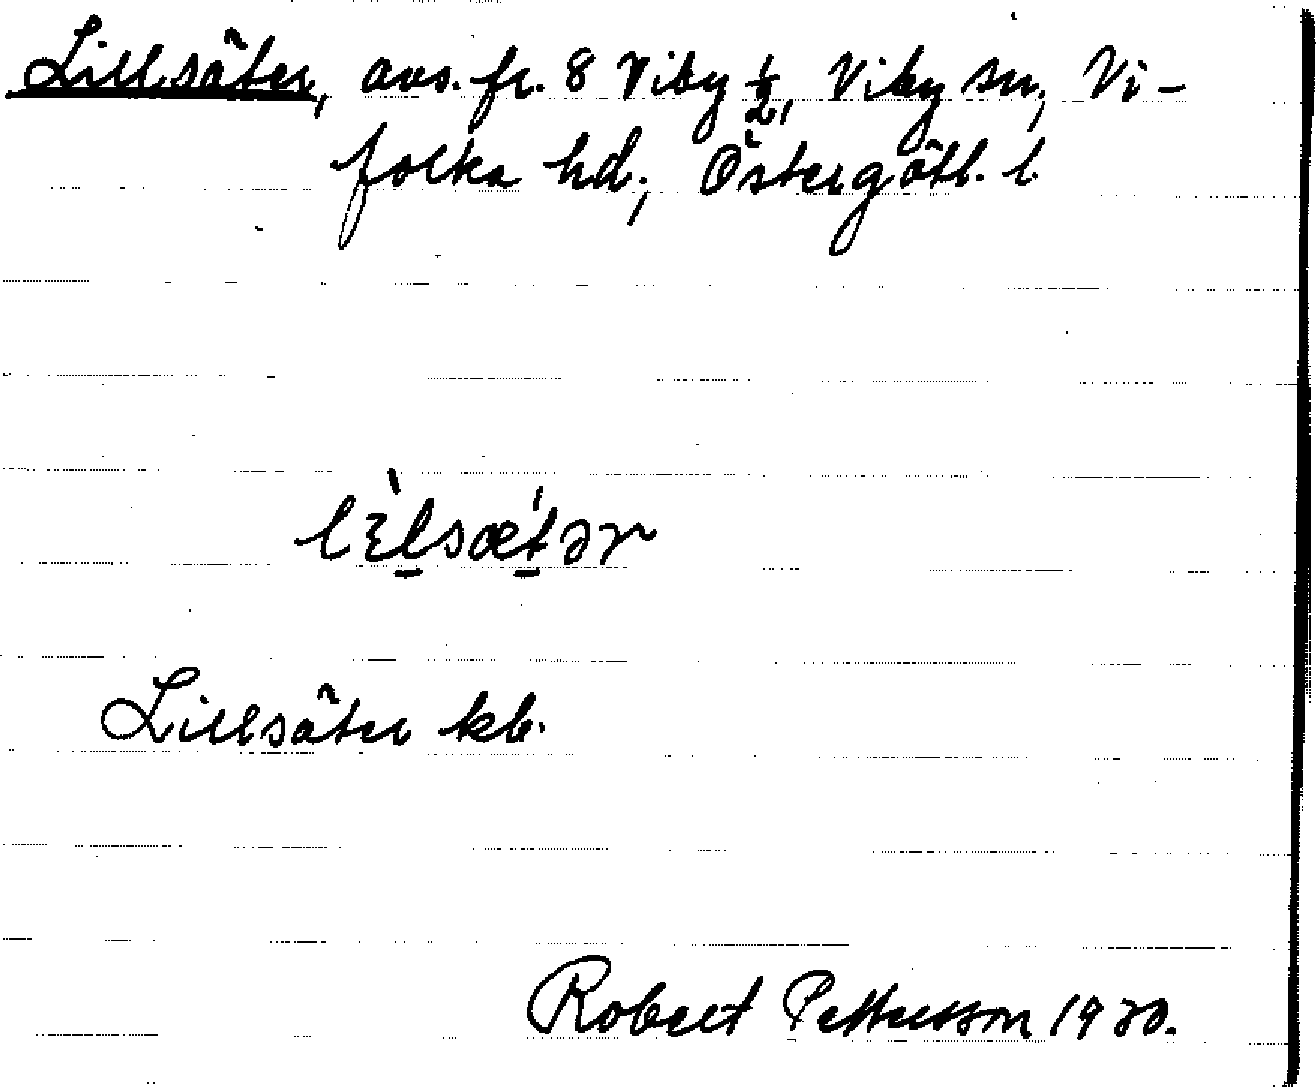 Lillsäter, avs. fr. 8 Viby 1/2, Viby sn, Vi-
folka hd, Östergötl. l.
lɛ̀l̠sæt̠́ər
Lillsäter kb.
Robert Pettersson 1930.